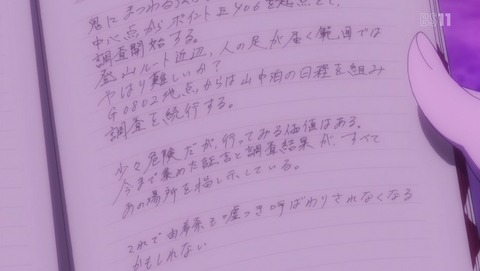 BS11
鬼にまつわる
中心点がポイントE406を起点とし、
調査開始する。
登山ルート近辺、人の足が届く範囲では
やはり難しいか?
G0802地点からは山中泊の日程を組み
調査を続行する。
少々危険だが、行ってみる価値はある。
今まで集めた証言と調査結果が、すべて
あの場所を指し示している。
これで由希奈も嘘つき呼ばわりされなくなる
かもしれない